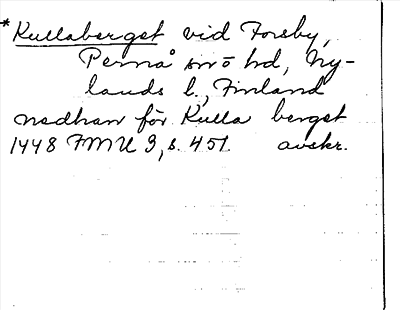 *Kullabergst vid Forsby,
Pernå sn o hd, Ny-
lands l., Finland
nædhan før Kulla bergst
1448 FMU 3, s. 451. avskr.